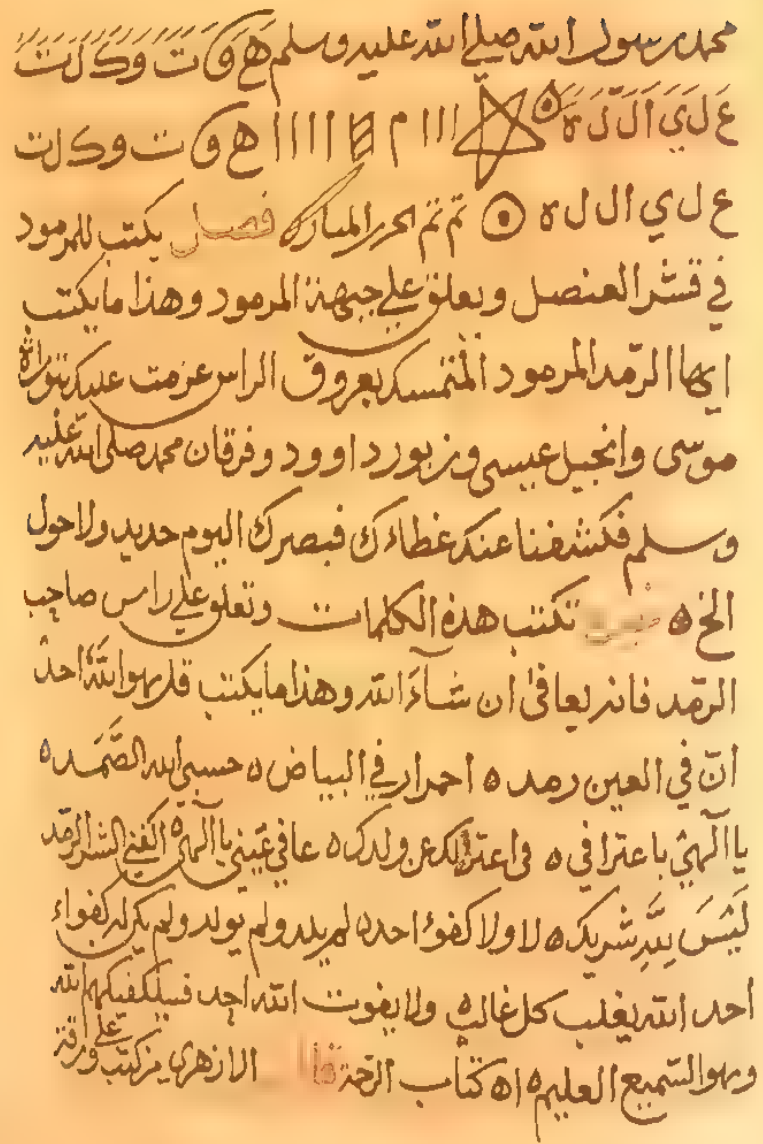 محمد رسول الله صلي الله عليه وسلم هَ وَ تَ وَ كَ لَ تَ
عَ لَ يَ اَ لَ لَ هَ ااا م اااا ه و ت و ك ل ت
ع ل ي ا ل ل ه تم تم الحرز المبارك فصل يكتب للمرمود
في قشر العنصل ويعلق علي جبهة المرمود وهذا ما يكتب
ايها الرمد المرمود المتمسك بعروق الراس عزمت عليك بتوراة
موسى وانجيل عيسى وزبور داوود وفرقان محمد صلى الله عليه
وسلم فكشفنا عنك غطاءك فبصرك اليوم حديد ولا حول
الخ ه تكتب هذه الكلمات وتعلق علي راس صاحب
الرمد فانه يعافى ان شآءَ الله وهذا ما يكتب قل هو اللهُ احد
انّ في العين رمد ه احمرار في البياض ه حسبي الله الصَّمَد ه
يا الهي باعترافي ه في اعتزالك عن ولدك ه عافي عيني يا الهي ه اكفني الشر الرمد
لَيْسَ لِلَّهِ شريك ه لا ولا كفؤا احد ه لم يلد ولم يولد ولم يكن له كفواء
أحد الله يغلب كل غالب ه ولا يفوت الله احد فسيكفيكهم الله
وهو السميع العليم ه اه كتاب الرحمة قال الازهري من كتب علي ورقة